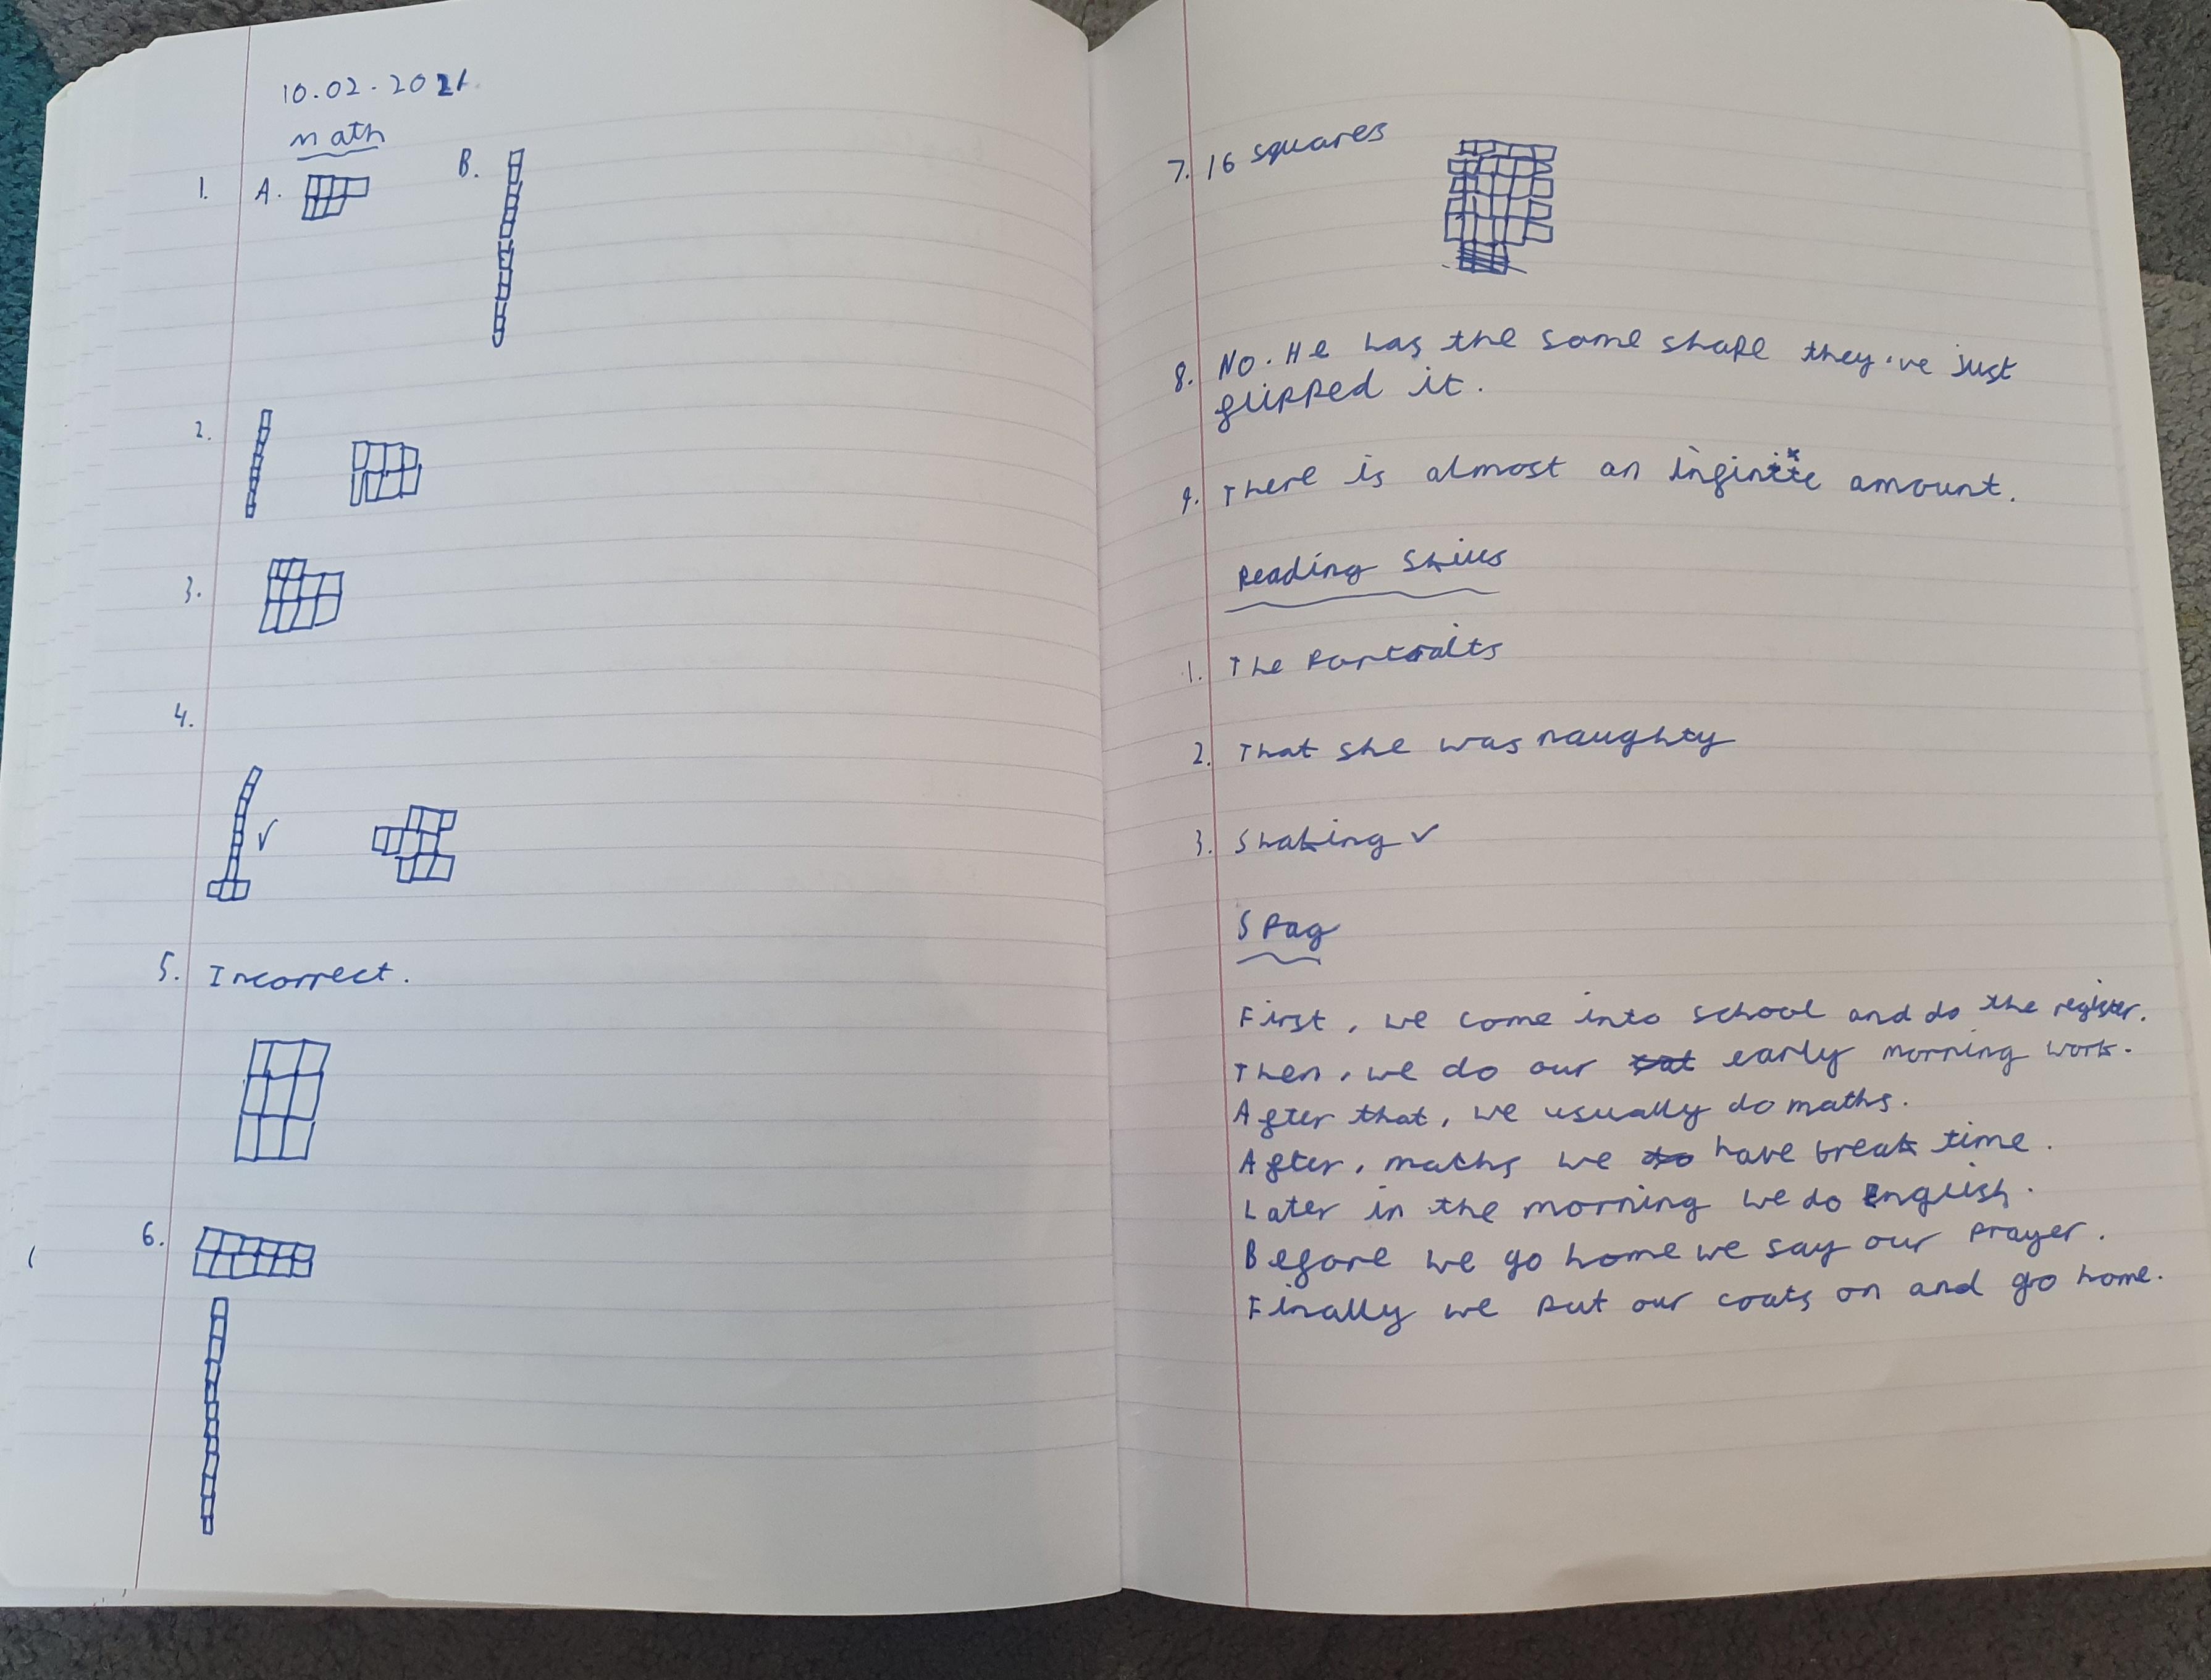 10.02.2021
math
1. A. B.
2.
3.
4.
5. Incorrect.
6.
7. 16 squares
8. No. He has the same shape they've just
flipped it.
9. There is almost an infinite amount.
Reading Skills
1. The Portraits
2. That she was naughty
3. Shaking ✓
SPag
First, we come into school and do the register.
Then, we do our early morning work.
After that, we usually do maths.
After, maths we do have break time.
Later in the morning we do English.
Before we go home we say our prayer.
Finally we put our coats on and go home.